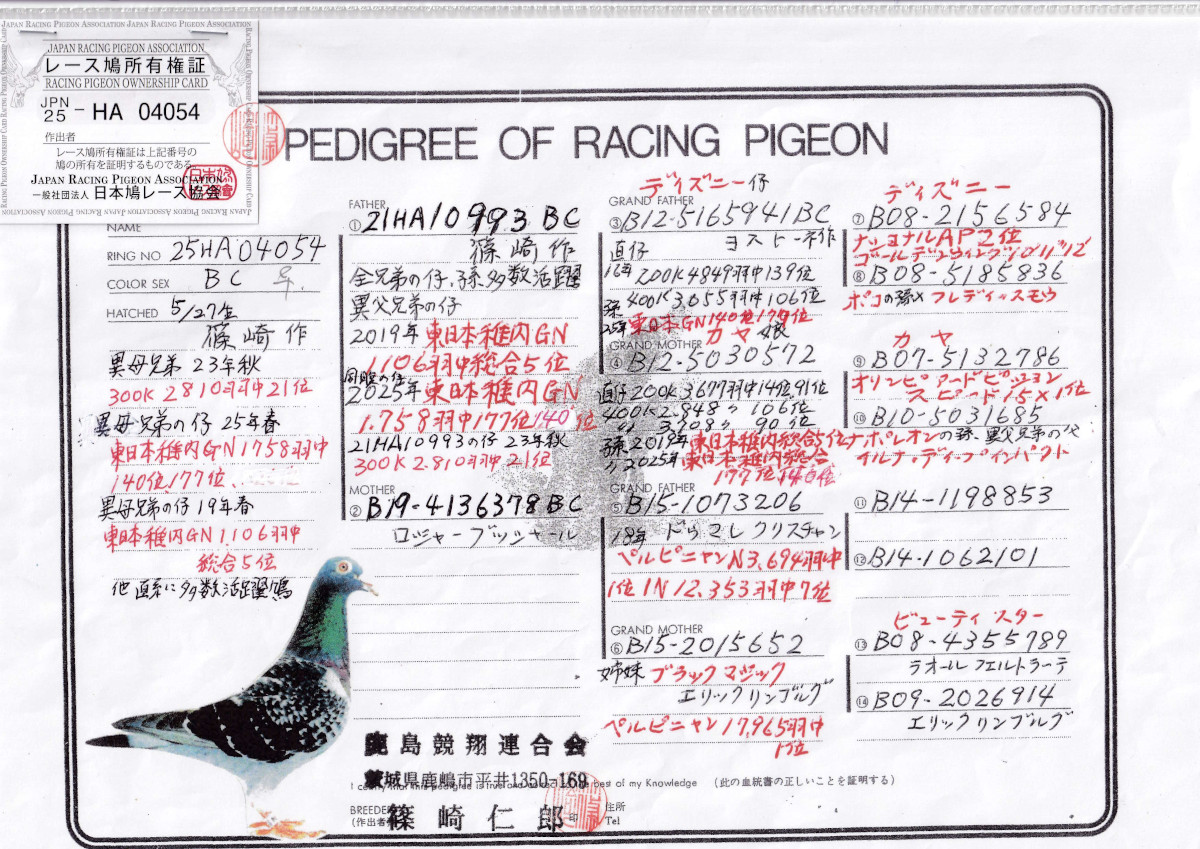 JAPAN RACING PIGEON ASSOCIATION JAPAN RACING PIGEON ASSOCIATION
JAPAN RACING PIGEON ASSOCIATION
レース鳩所有権証
RACING PIGEON OWNERSHIP CARD
JPN
25 - HA 04054
作出者
レース鳩所有権証は上記番号の
鳩の所有を証明するものである。
JAPAN RACING PIGEON ASSOCIATION
一般社団法人 日本鳩レース協会
PEDIGREE OF RACING PIGEON
NAME
RING NO 25HA04054
COLOR SEX BC ♀
HATCHED 5/27生
篠崎作
異母兄弟 23年秋
300K 2810羽中21位
異母兄弟の仔 25年春
東日本稚内GN1758羽中
140位、177位
異母兄弟の仔 19年春
東日本稚内GN1.106羽中
総合5位
他直系に多数活躍鳩
FATHER
① 21HA10993 BC
篠崎作
全兄弟の仔、孫、多数活躍
異父兄弟の仔
2019年 東日本稚内GN
1106羽中総合5位
同腹の仔
2025年 東日本稚内GN
1.758羽中177位 140位
21HA10993の仔 23年秋
300K 2.810羽中21位
MOTHER
② B19-4136378 BC
ロジャーブッシャール
ディズニー仔
GRAND FATHER
③ B12-5165941BC
直仔 ヨスヒーネ作
16年 200K4849羽中139位
孫 400K3.655羽中106位
25年 東日本GN140位177位
カヤ娘
GRAND MOTHER
④ B12-5030572
直仔 200K 3677羽中14位、91位
400K 2.848〃 106位
〃 3.708〃 90位
孫2019年東日本稚内総合5位
〃2025年東日本稚内総合
177位140位
GRAND FATHER
⑤ B15-1073206
18年 ドゥマレクリスチャン
ペルピニャンN3.694羽中
1位 IN 12.353羽中7位
GRAND MOTHER
⑥ B15-2015652
姉妹 ブラックマジック
エリックリンブルグ
ペルピニャン17,965羽中
1位
ディズニー
⑦ B08-2156584
ナショナルAP2位
ゴールデンウィング'10'11'12
⑧ B08-5185836
ポコの孫×フレディ×スモウ
カヤ
⑨ B07-5132786
オリンピアードピジョン
スピード15×1位
⑩ B10-5031685
ナポレオンの孫、異父兄弟の仔
イルナ・ディープインパクト
⑪ B14-1198853
⑫ B14-1062101
ビューティスター
⑬ B08-4355789
ラオールフェルトラーテ
⑭ B09-2026914
エリックリンブルグ
鹿島競翔連合会
茨城県鹿嶋市平井1350-169
I certify that this pedigree is true and correct to the best of my Knowledge (此の血統書の正しいことを証明する)
BREEDER
(作出者) 篠崎仁郎 印
住所
Tel